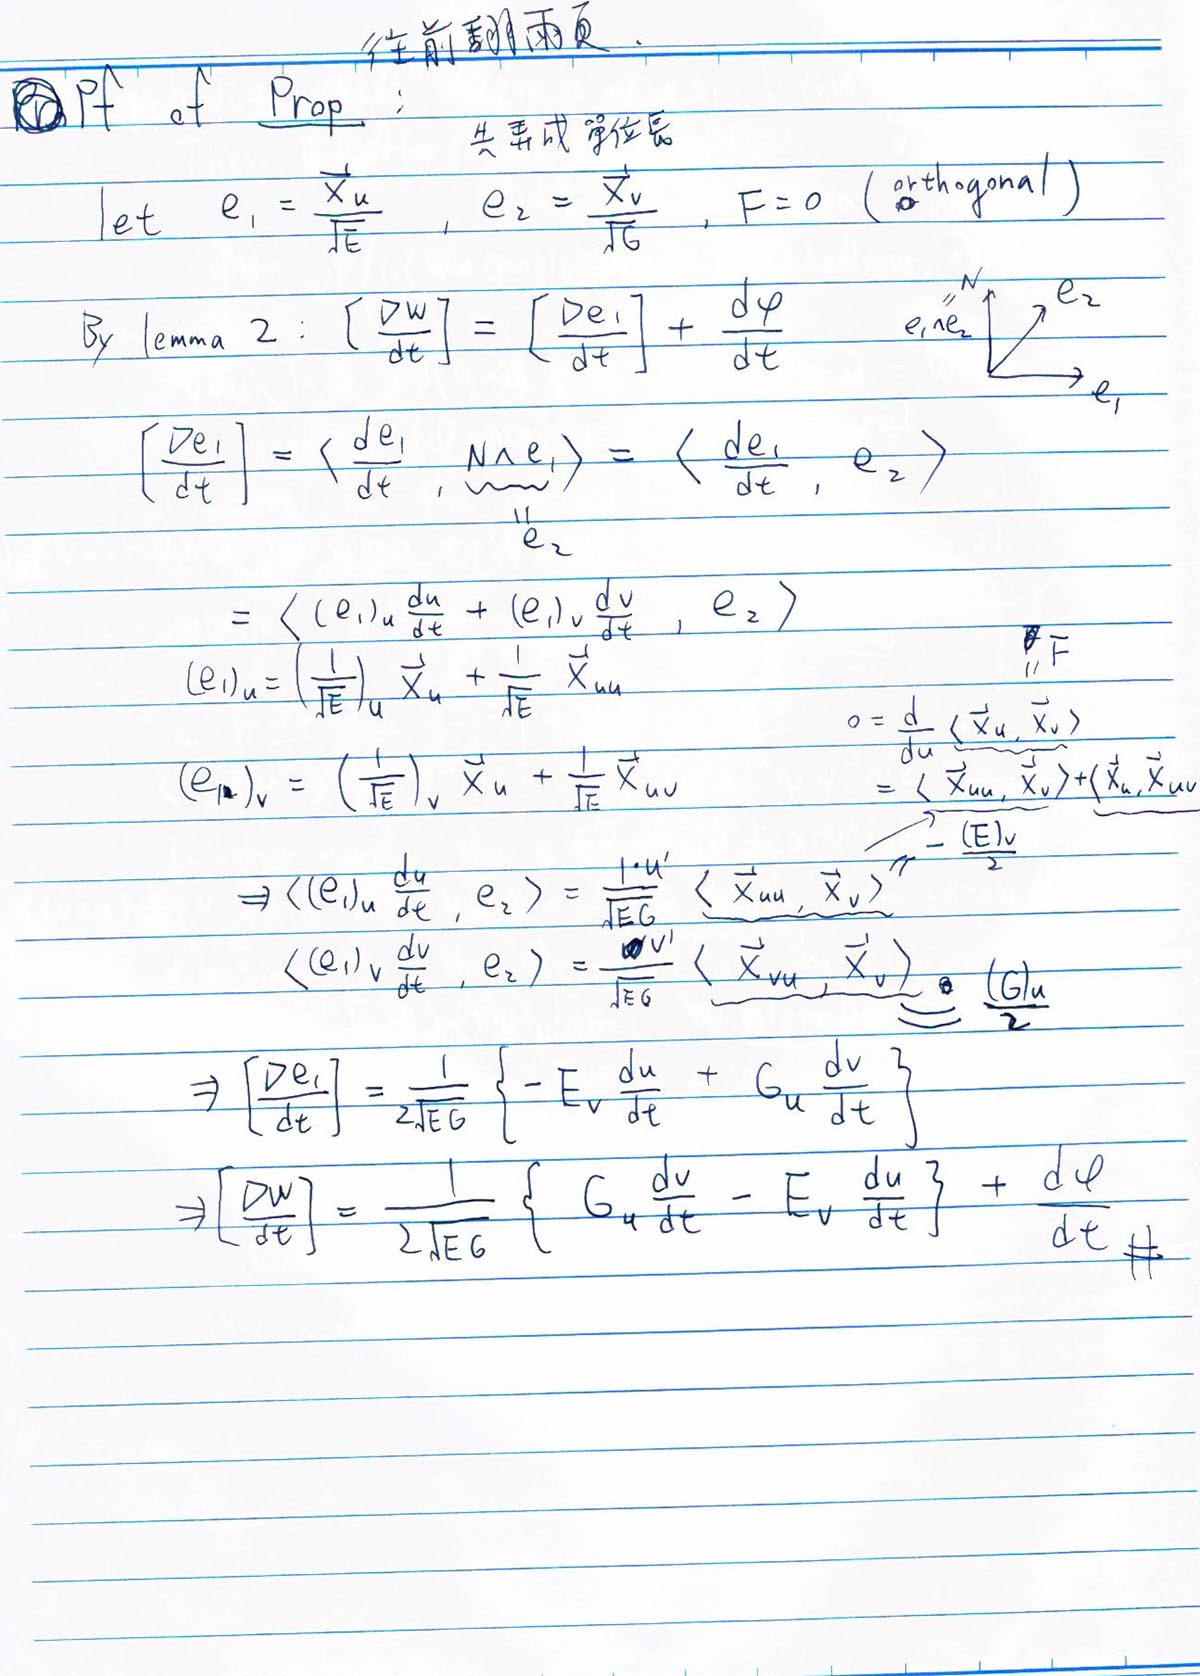 往前翻兩頁.
Pf of Prop :
先弄成單位長
let e₁ = X⃗u/√E , e₂ = X⃗v/√G , F=0 (orthogonal)
By lemma 2 : [DW/dt] = [De₁/dt] + dφ/dt
N = e₁∧e₂
e₂
e₁
[De₁/dt] = ⟨de₁/dt , N∧e₁⟩ = ⟨de₁/dt , e₂⟩
"
e₂
= ⟨(e₁)u du/dt + (e₁)v dv/dt , e₂⟩
(e₁)u = (1/√E)u X⃗u + 1/√E X⃗uu
" F
0 = d/du ⟨X⃗u, X⃗v⟩
(e₁)v = (1/√E)v X⃗u + 1/√E X⃗uv
= ⟨X⃗uu, X⃗v⟩+⟨X⃗u, X⃗uv
- (E)v/2
⇒ ⟨(e₁)u du/dt , e₂⟩ = 1·u'/√EG ⟨X⃗uu, X⃗v⟩
⟨(e₁)v dv/dt , e₂⟩ = v'/√EG ⟨X⃗vu, X⃗v⟩ = (G)u/2
⇒ [De₁/dt] = 1/2√EG {-Ev du/dt + Gu dv/dt}
⇒ [DW/dt] = 1/2√EG {Gu dv/dt - Ev du/dt} + dφ/dt #